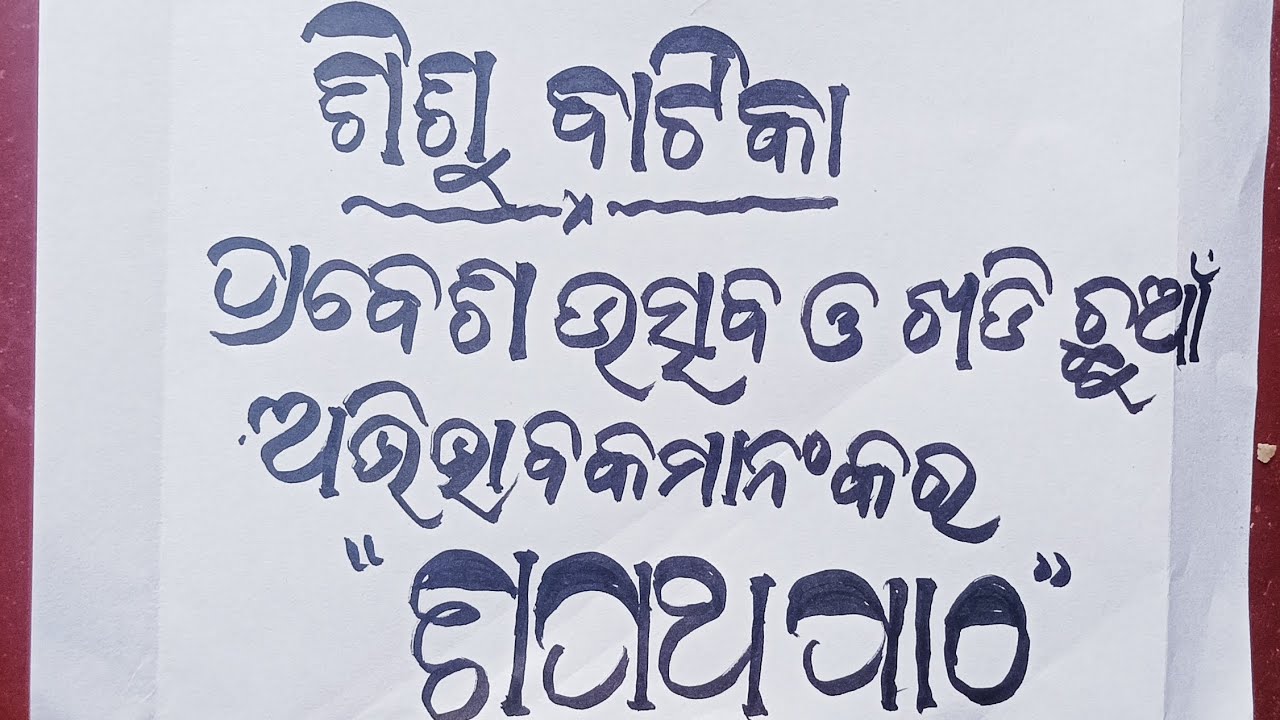 ଶିଶୁ ବାଟିକା
ପ୍ରବେଶ ଉତ୍ସବ ଓ ଖଡି ଛୁଆଁ
ଅଭିଭାବକମାନଂକର
“ ଶପଥ ପାଠ ”